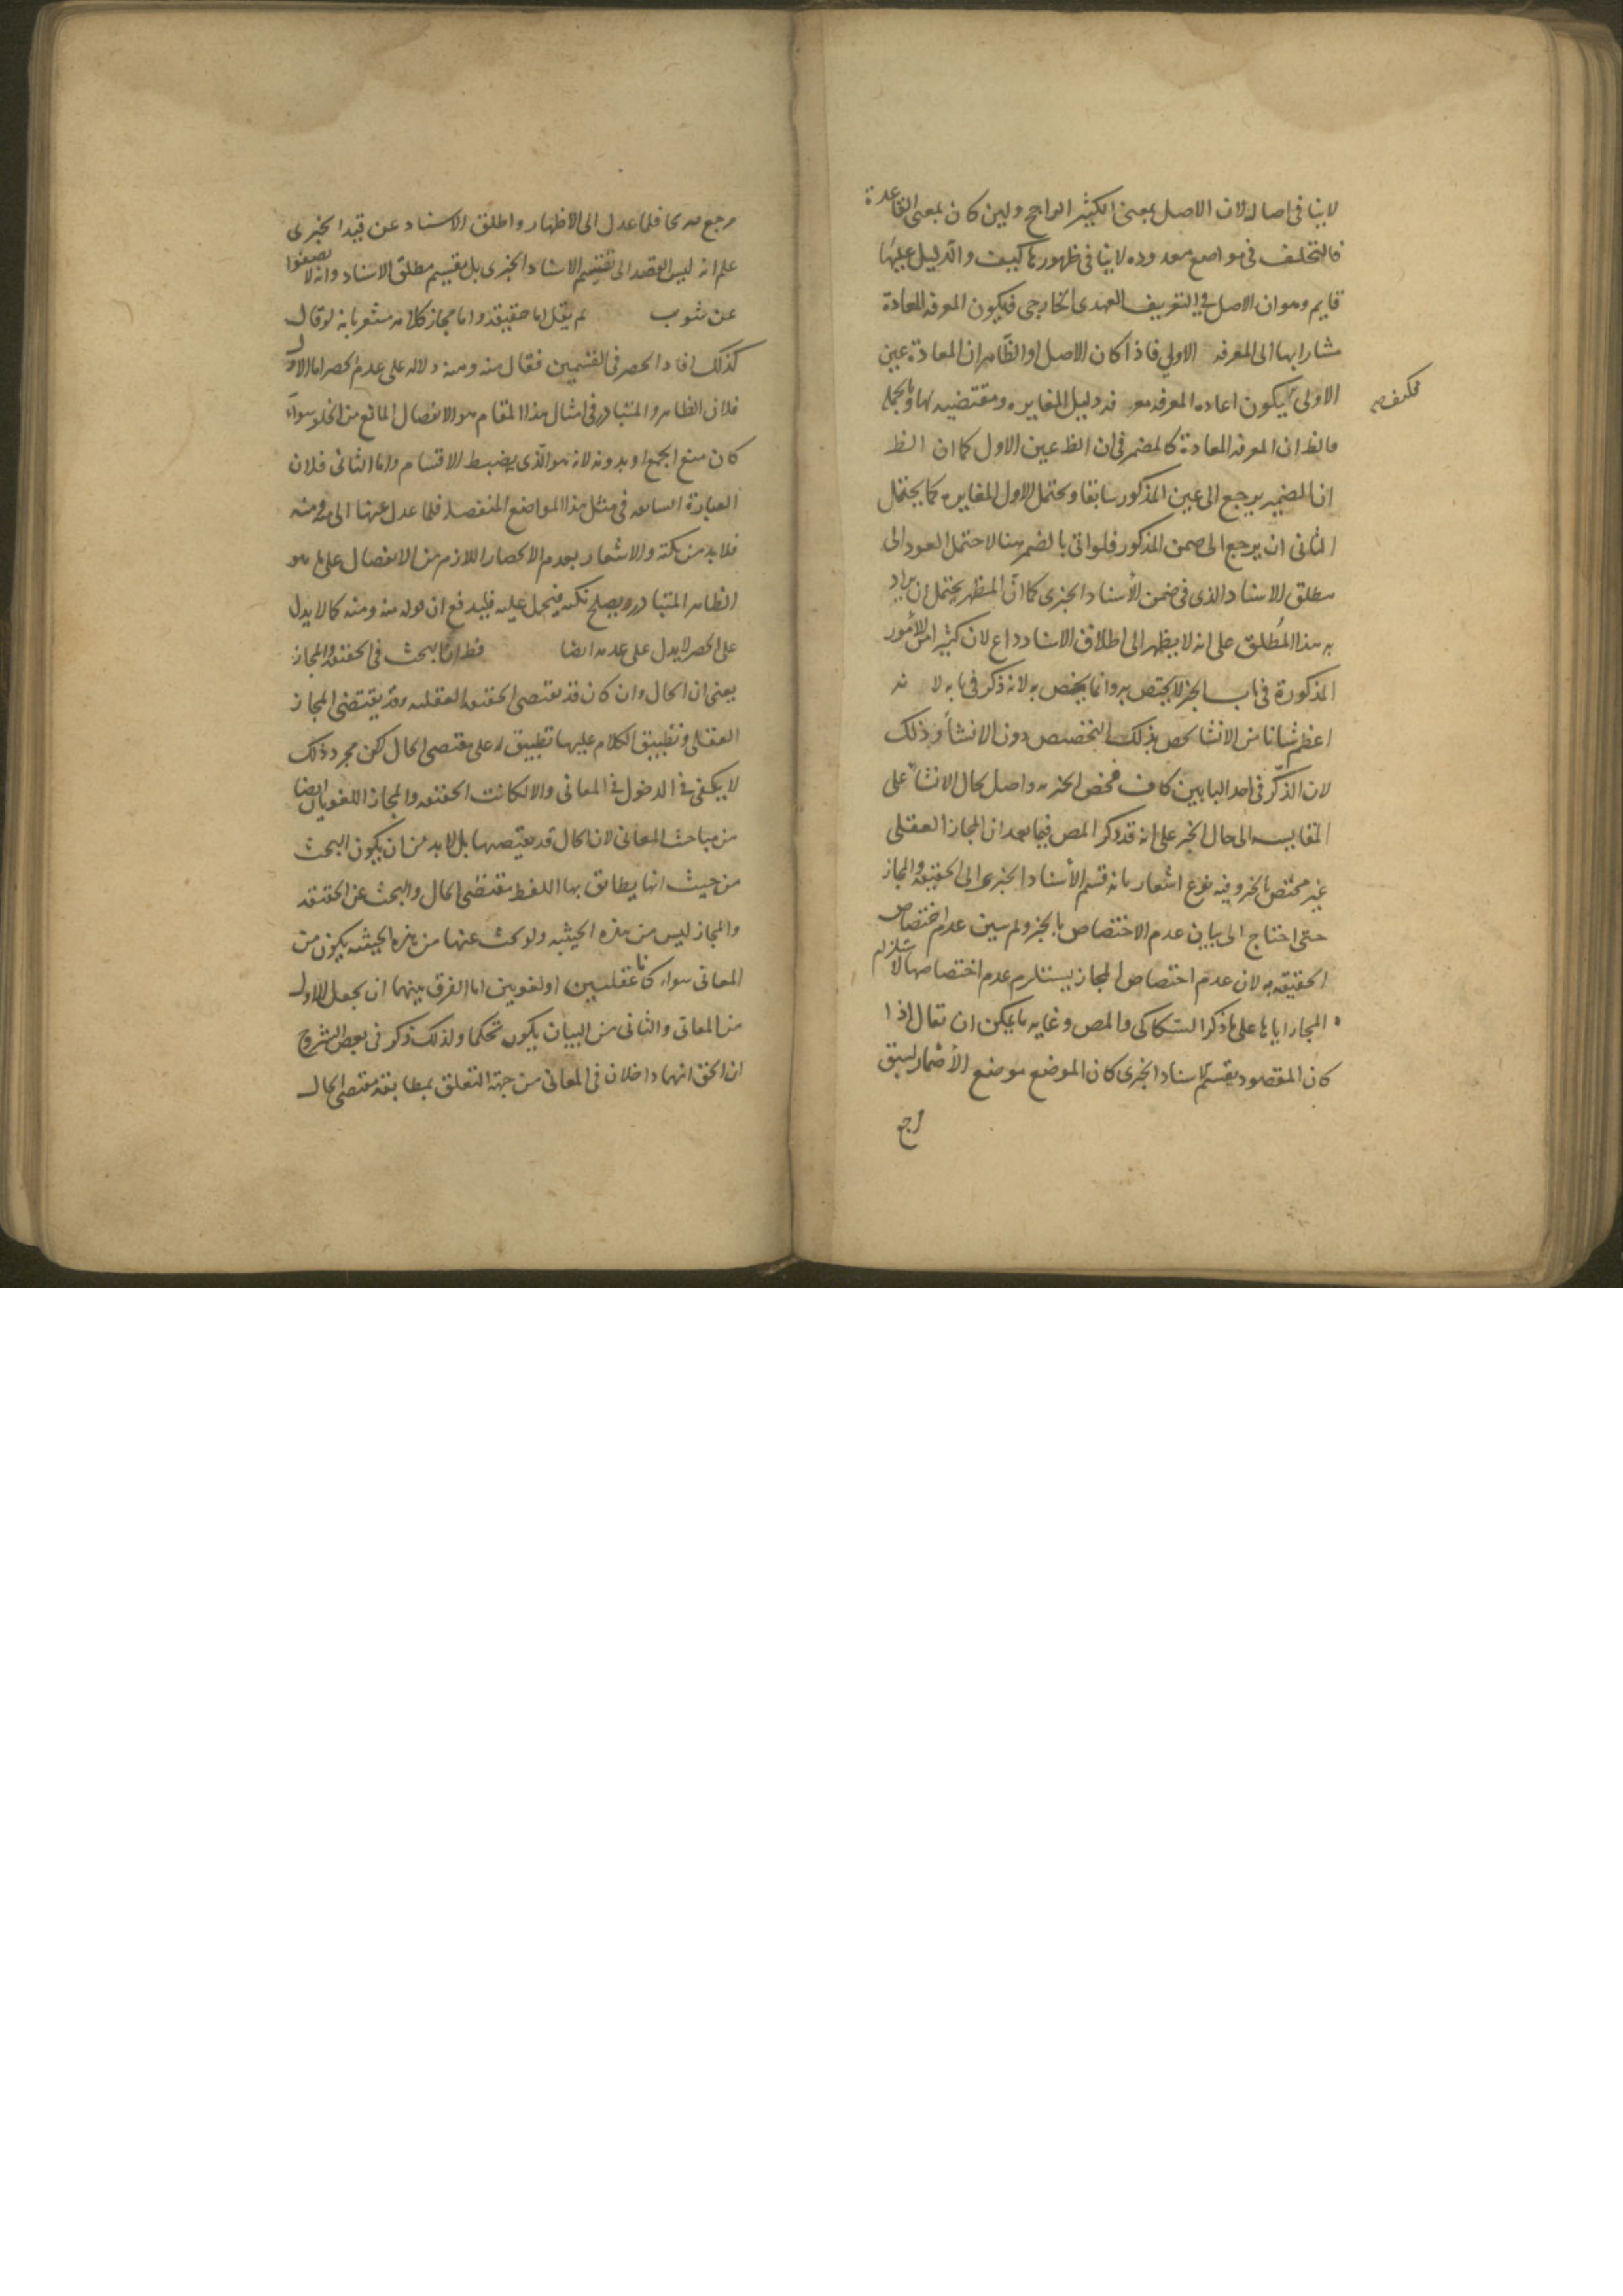 لاينافى اصالة لان الاصل بمعنى الكثير الراجح ولين كان بمعنى القاعدة
فالتخلف فى مواضع معدوده لاينافى ظهورها كيف والدليل عليها
قايم وهو ان الاصل فى التعريف العهدى الخارجى فيكون المعرفه المعادة
مشارابها الى المعرفه الاولى فاذا كان الاصل او الظاهر ان المعادة عين
الاولى يكون اعاده المعرفه معرفه دليل المغايره ومقتضيه لها وبالجمله
فالظ ان المعرفه المعادة كالمضمر فى ان الظ عين الاول كما ان الظ
ان المضمير يرجع الى عين المذكور سابقا ويحتمل الاول المغايره كما يحتمل
الثانى ان يرجع الى ضمن المذكور فلو اتى بالضمر هنا لاحتمل العود الى
مطلق الاسناد الذى فى ضمن الأسناد الخبرى كما ان المظهر يحتمل ان يراد
به هذا المطلق على انه لا يظهر الى اطلاق الاسناد داع لان كثيرا من الأمور
المذكورة فى باب الخبر لا يختص به وانما يختص به لانه ذكر فى بابه لا نه
اعظم شانا من الانشا خص بذلك التخصيص دون الانشأ وذلك
لان الذكر فى احد البابين كاف فخص الخبر به واصل بحال الانشأ على
المقايسه الى حال الخبر على انه قد ذكر المص فيما بعد ان المجاز العقلى
غير مختص بالخبر وفيه نوع اشعار بانه قسم الأسناد الخبرى الى الحقيقه والمجاز
حتى احتاج الى بيان عدم الاختصاص بالخبر ولم يبين عدم اختصاص
الحقيقه به لان عدم اختصاص المجاز يستلزم عدم اختصاصها لاستلزام
المجاز اياها على ما ذكر السكاكى والمص وغايه ما يمكن ان يقال اذا
كان المقصود تقسيم الاسناد الخبرى كان الموضع موضع الأضمار لسبق
مرجع
مرجع صريحا فلما عدل الى الاظهار واطلق الاسناد عن قيد الخبرى
علم انه ليس القصد الى تقسيم الاسناد الخبرى بل تقسيم مطلق الاسناد وانه لا يصفوا
عن شوب لم يقل اما حقيقة واما مجاز كلامه مشعر بانه لو قال
كذلك افاد الحصر فى القسمين فقال منه ومنه دلالة على عدم الحصر اما الاول
فلان الظاهر والمتبادر فى امثال هذا المقام هو الانفصال المانع من الخلو سواء
كان منع الجمع او بدونه لانه هو الذى يضبط الاقسام واما الثانى فلان
العبارة السابعه فى مثل هذا المواضع المنفصله فلما عدل عنها الى منه ومنه
فلابد من نكتة والاشعار بعدم الانحصار اللازم من الانفصال على ما هو
الظاهر المتبادر ويصلح نكته فيحمل عليه فليدفع ان قوله منه ومنه كما لا يدل
على الحصر لا يدل على عدمه ايضا فظ ان البحث فى الحقيقه والمجاز
يعنى ان الحال وان كان قد يقتضى الحقيقه العقليه وقد يقتضى المجاز
العقلى وتطبيق الكلام عليهما تطبيق له على مقتضى الحال لكن مجرد ذلك
لا يكفى فى الدخول فى المعانى والا لكانت الحقيقه والمجاز اللغويان ايضا
من مباحث المعانى لان الحال قد يقتضيها بل لابد من ان يكون البحث
من حيث انها يطابق بها اللفظ مقتضى الحال والبحث عن الحقيقه
والمجاز ليس من هذه الحيثيه ولو بحث عنها من هذه الحيثيه يكون من
المعانى سواء كانا عقليين او لغويين اما الفرق بينهما ان يجعل الاول
من المعانى والثانى من البيان يكون تحكما ولذلك ذكر فى بعض الشروح
ان الحق انهما داخلان فى المعانى من جهة التعلق بمطابقة مقتضى الحال